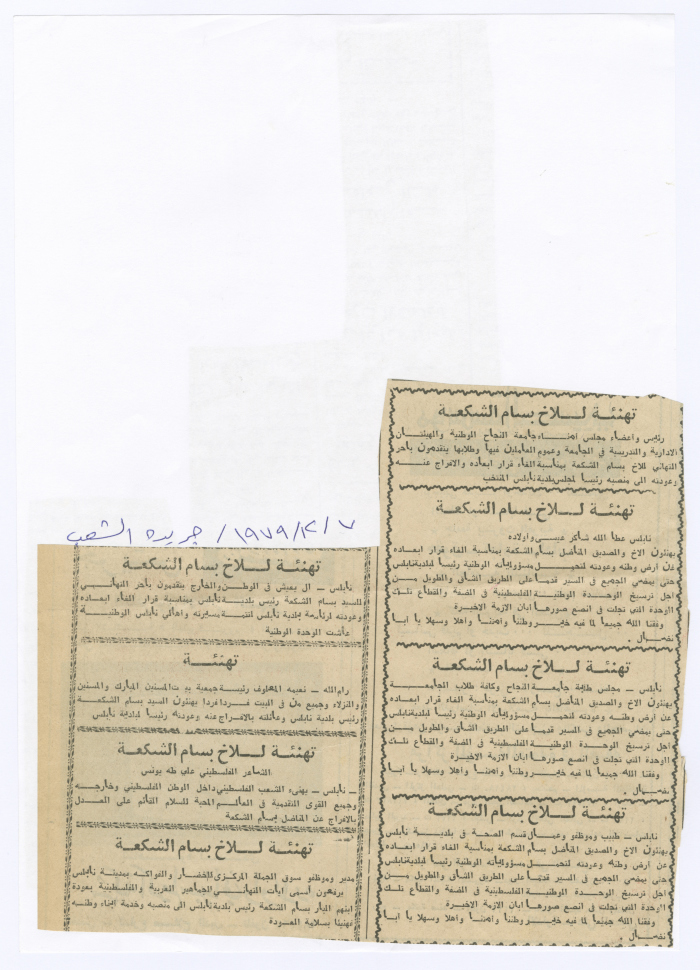 تهنئة لـــلاخ بسام الشكعة
رئيس واعضاء مجلس امناء جامعة النجاح الوطنية والهيئتان
الادارية والتدريسية في الجامعة وعموم العاملين فيها وطلابها يتقدمون بأحر
التهاني للاخ بسام الشكعة بمناسبة الغاء قرار ابعاده والافراج عنه
وعودته الى منصبه رئيسا لمجلس بلدية نابلس المنتخب
تهنئة لـــلاخ بسام الشكعة
نابلس عطا الله شاكر عيسى واولاده
يهنئون الاخ والصديق المناضل بسام الشكعة بمناسبة الغاء قرار ابعاده
عن ارض وطنه وعودته لتحمل مسؤولياته الوطنية رئيسا لبلدية نابلس
حتى يمضي الجميع في السير قدما على الطريق الشاق والطويل من
اجل ترسيخ الوحدة الوطنية الفلسطينية في الضفة والقطاع تلك
الوحدة التي تجلت في انصع صورها ابان الازمة الاخيرة
وفقنا الله جميعا لما فيه خير وطننا وامتنا واهلا وسهلا يا ابا
نضال .
تهنئة لـــلاخ بسام الشكعة
نابلس — مجلس طلبة جامعة النجاح وكافة طلاب الجامعة
يهنئون الاخ والصديق المناضل بسام الشكعة بمناسبة الغاء قرار ابعاده
عن ارض وطنه وعودته لتحمل مسؤولياته الوطنية رئيسا لبلدية نابلس
حتى يمضي الجميع في السير قدما على الطريق الشاق والطويل من
اجل ترسيخ الوحدة الوطنية الفلسطينية في الضفة والقطاع تلك
الوحدة التي تجلت في انصع صورها ابان الازمة الاخيرة
وفقنا الله جميعا لما فيه خير وطننا وامتنا واهلا وسهلا يا ابا
نضال .
تهنئة لـــلاخ بسام الشكعة
نابلس — طبيب وموظفو وعمال قسم الصحة في بلدية نابلس
يهنئون الاخ والصديق المناضل بسام الشكعة بمناسبة الغاء قرار ابعاده
عن ارض وطنه وعودته لتحمل مسؤولياته الوطنية رئيسا لبلدية نابلس
حتى يمضي الجميع في السير قدما على الطريق الشاق والطويل من
اجل ترسيخ الوحدة الوطنية الفلسطينية في الضفة والقطاع تلك
الوحدة التي تجلت في انصع صورها ابان الازمة الاخيرة
وفقنا الله جميعا لما فيه خير وطننا وامتنا واهلا وسهلا يا ابا
نضال .
١٩٧٩/١٢/٧ / جريدة الشعب
تهنئة لـــلاخ بسام الشكعة
نابلس — ال يعيش في الوطن والخارج يتقدمون بأحر التهاني
للسيد بسام الشكعة رئيس بلدية نابلس بمناسبة قرار الغاء ابعاده
وعودته لرئاسة بلدية نابلس لتتمة مسيرته واهالي نابلس الوطنية
عاشت الوحدة الوطنية
تهنئـــة
رام الله — نعيمه المخلوف رئيسة جمعية بيت المسنين المبارك والمسنين
والنزلاء وجميع من في البيت فردا فردا يهنئون السيد بسام الشكعة
رئيس بلدية نابلس وعائلته بالافراج عنه وعودته رئيسا لبلدية نابلس
تهنئة لـــلاخ بسام الشكعة
الشاعر الفلسطيني علي طه يونس
— نابلس — يهنىء الشعب الفلسطيني داخل الوطن الفلسطيني وخارجه
وجميع القوى التقدمية في العالم المحبة للسلام القائم على العدل
بالافراج عن المناضل بسام الشكعة
تهنئة لـــلاخ بسام الشكعة
مدير وموظفو سوق الجملة المركزي للخضار والفواكه بمدينة نابلس
يرفعون أسمى آيات التهاني للجماهير العربية والفلسطينية بعودة
ابنهم البار بسام الشكعة رئيس بلدية نابلس الى منصبه وخدمة ابناء وطنه
تهنيئا بسلامة العودة